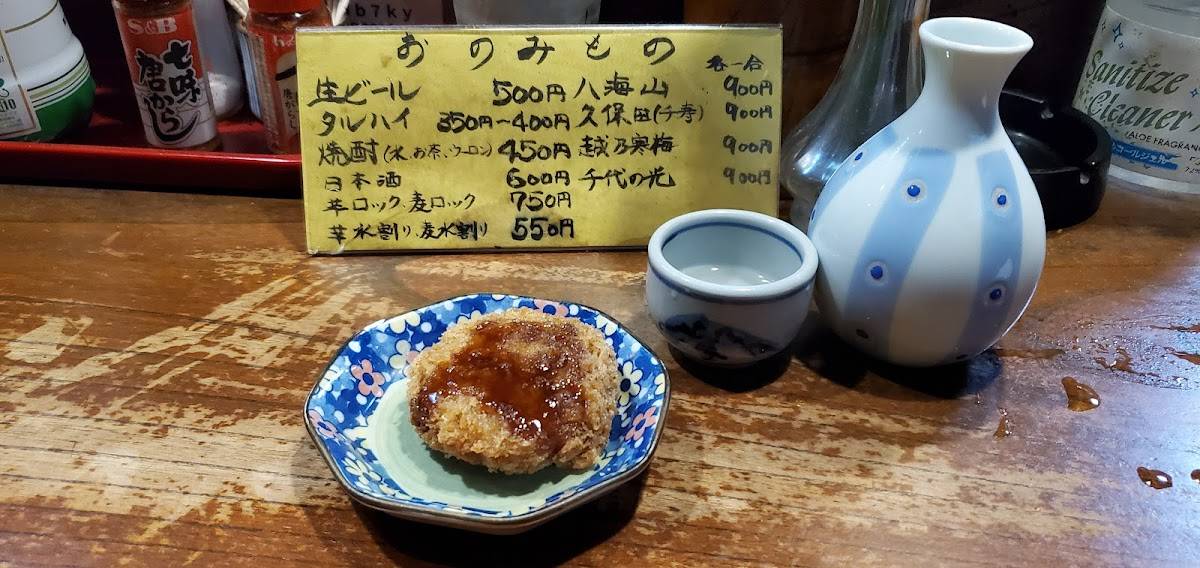 S&B
七味
唐からし
b7ky
おのみもの
各一合
生ビール 500円 八海山 900円
タルハイ 350円~400円 久保田(千寿) 900円
焼酎(水、お茶、ウーロン) 450円 越乃寒梅 900円
日本酒 600円 千代の光 900円
芋ロック、麦ロック 750円
芋水割り、麦水割り 550円
Sanitize
Cleaner
ALOE FRAGRANCE